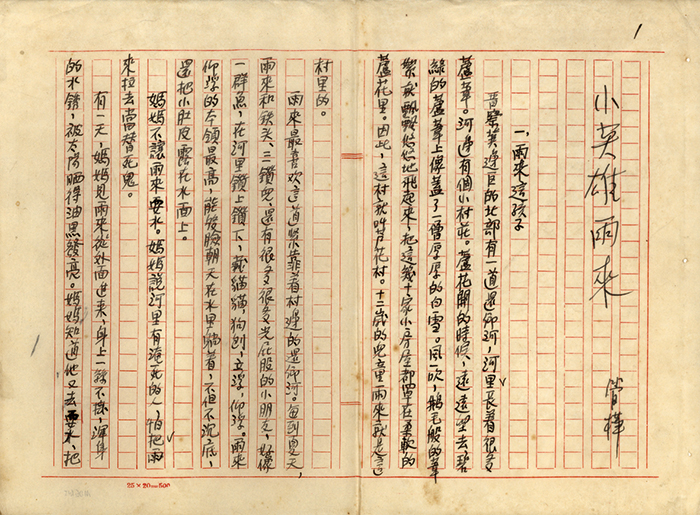 1
小英雄雨來
管樺
一、雨來這孩子
晋察冀边區的北部有一道還鄉河，河里長着很多
蘆葦。河边有個小村莊。蘆花開的時候，遠遠望去碧
綠的蘆葦上像蓋了一層厚厚的白雪。風一吹，鵝毛般的葦
絮就飄飄悠悠地飛起來，把這幾十家小房屋都罩在柔軟的
蘆花里。因此，這村就叫芦花村。十二歲的兒童雨來就是這
村里的。
雨來最喜欢這道緊靠着村边的還鄉河。每到夏天，
雨來和鉄头、三鑽兒，還有很多很多光屁股的小朋友，好像
一群魚，在河里鑽上鑽下，藏貓貓，狗刨，立浮，仰浮。雨來
仰浮的本領最高，能够臉朝天在水里躺着，不但不沉底，
還把小肚皮露在水面上。
媽媽不讓雨來耍水。媽媽說河里有淹死的人，怕把雨
來拉去當替死鬼。
有一天，媽媽見雨來從外面進來，身上一絲不掛，渾身
的水銹，被太陽晒得油黑發亮。媽媽知道他又去耍水，把
25×20=500